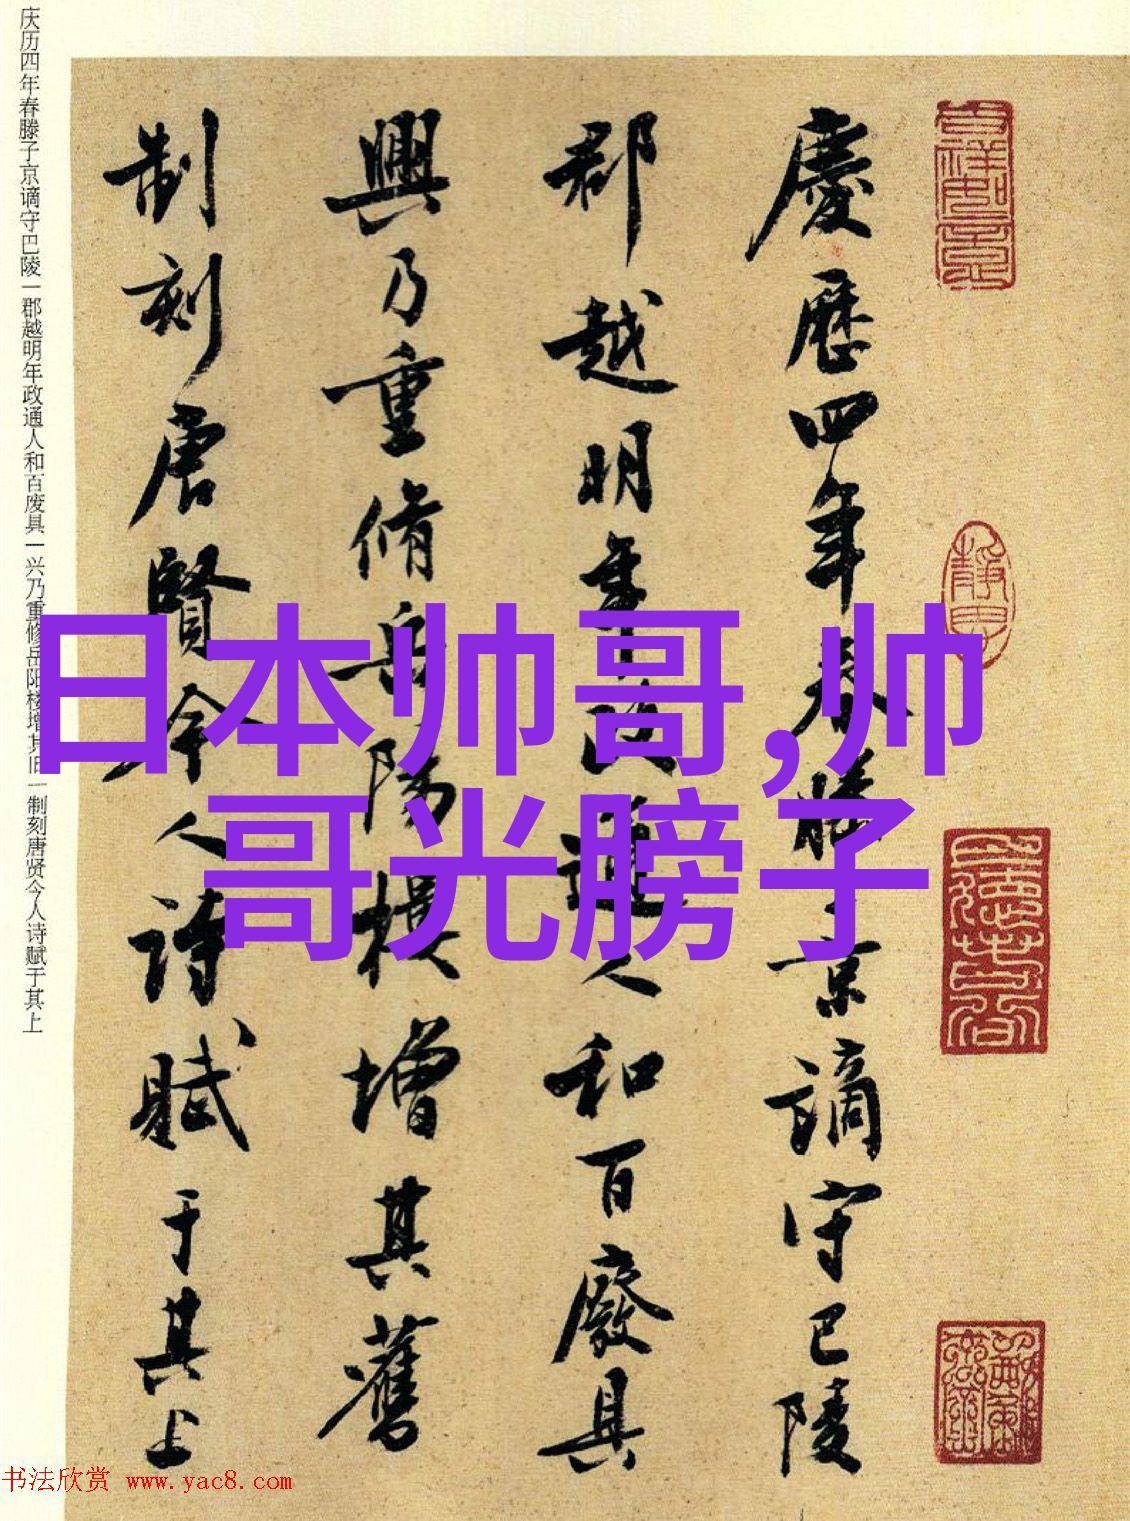 庆历四年春滕子京谪守巴陵一郡越明年政通人和百废具一兴乃重修岳阳楼增其旧一制刻唐贤今人诗赋于其上
慶歷四年春滕子京謫守巴陵
郡越明年政通人和百廢具
興乃重脩岳陽樓增其舊
制刻唐賢今人诗賦于其上
日本帅哥,帅
哥光膀子
书法欣赏 www.yac8.com